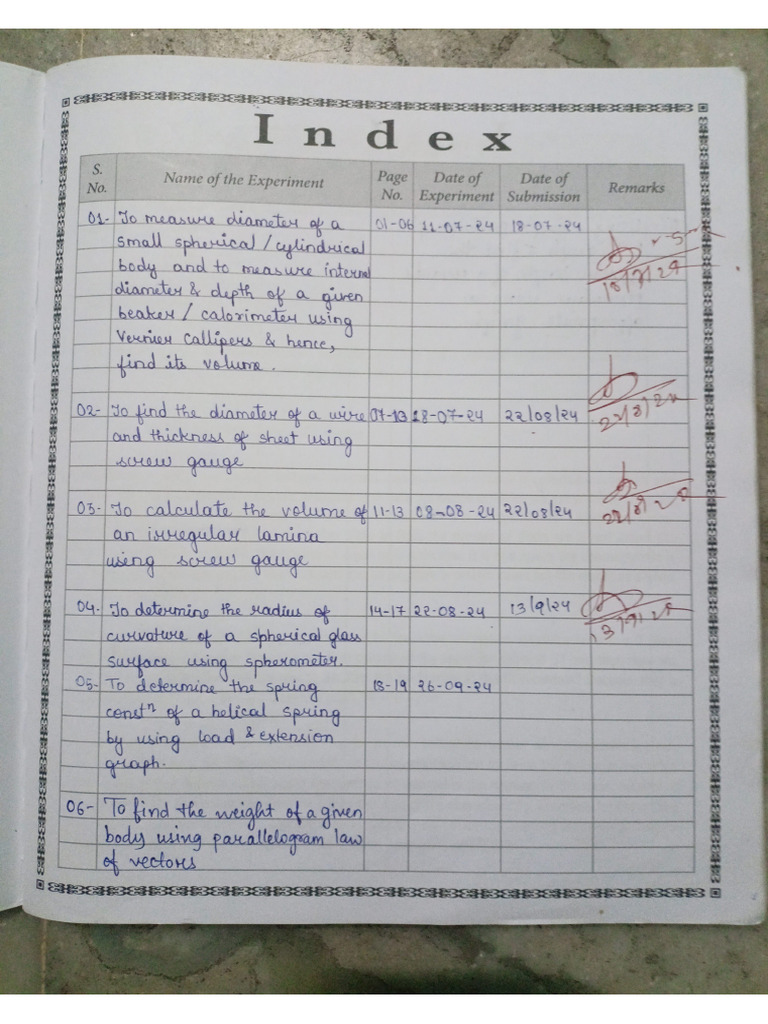 Index
S. No. Name of the Experiment Page No. Date of Experiment Date of Submission Remarks
01- To measure diameter of a 01-06 11-07-24 18-07-24
small spherical / cylindrical
body and to measure internal
diameter & depth of a given 18/7/24
beaker / calorimeter using
Vernier Callipers & hence,
find its volume.
02- To find the diameter of a wire 07-13 18-07-24 22/08/24 22/8/24
and thickness of sheet using
screw gauge
03- To calculate the volume of 11-13 08-08-24 22/08/24 22/8/24
an irregular lamina
using screw gauge
04- To determine the radius of 14-17 22-08-24 13/9/24 13/9/24
curvature of a spherical glass
surface using spherometer.
05- To determine the spring 18-19 26-09-24
constⁿ of a helical spring
by using load & extension
graph.
06- To find the weight of a given
body using parallelogram law
of vectors